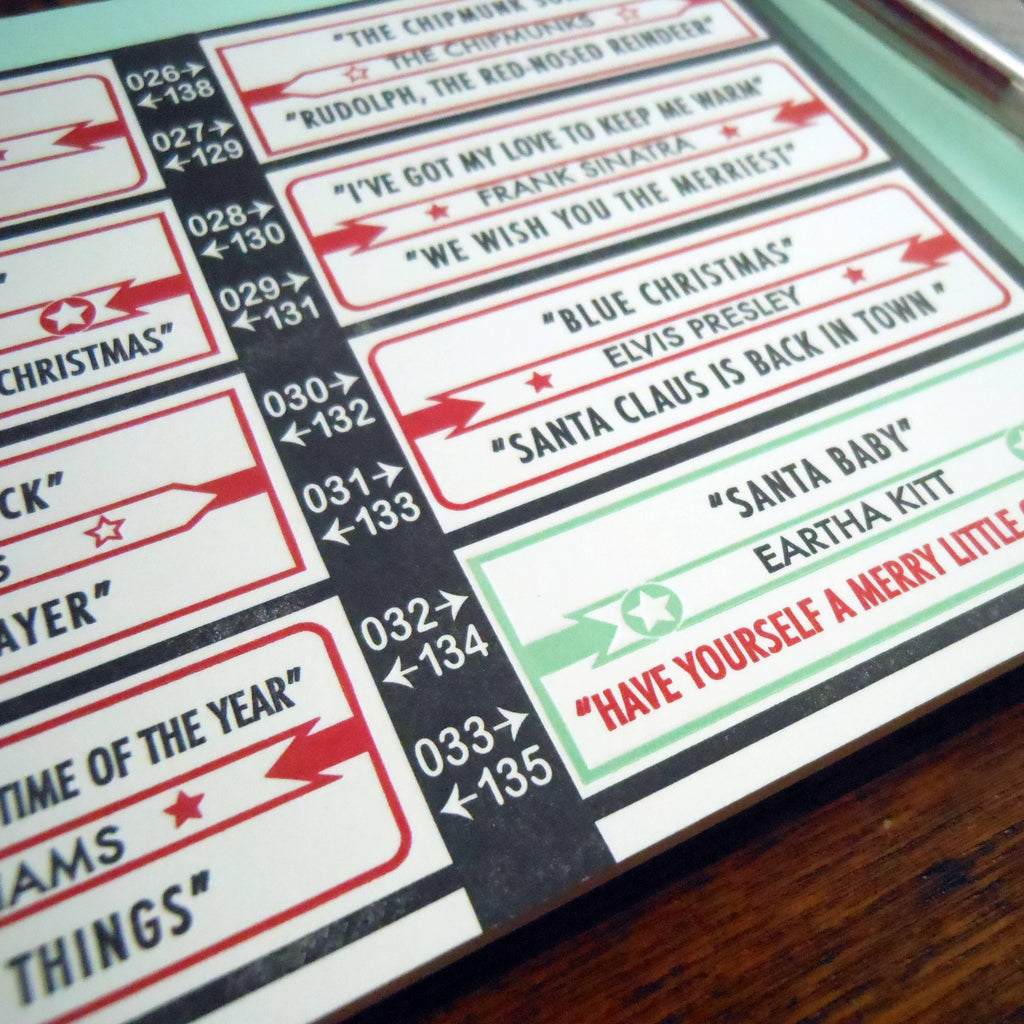 "THE CHIPMUNK
THE CHIPMUNKS
"RUDOLPH, THE RED-NOSED REINDEER"
"I'VE GOT MY LOVE TO KEEP ME WARM"
FRANK SINATRA
"WE WISH YOU THE MERRIEST"
"BLUE CHRISTMAS"
ELVIS PRESLEY
"SANTA CLAUS IS BACK IN TOWN"
"SANTA BABY"
EARTHA KITT
"HAVE YOURSELF A MERRY LITTLE
026→
←138
027→
←129
028→
←130
029→
←131
030→
←132
031→
←133
032→
←134
033→
←135
CHRISTMAS"
CK"
S
AYER"
TIME OF THE YEAR"
IAMS
THINGS"